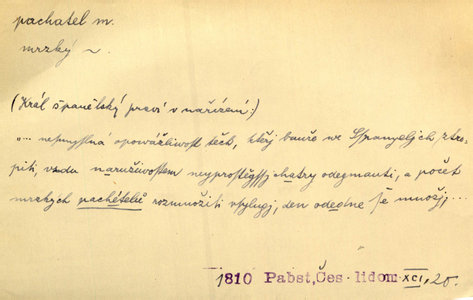 pachatel m.
mrzký ~.
(Král španělský praví v nařízení:)
„... nesmyslná opowážliwost těch, kteřj bauře we Sspanyeljch ztro-
piti, wzdu naružiwostem neyprostěgssjch chatry odegmauti, a počet
mrzkých pachételů rozmnožiti vsylugj, den ode dne se množj, ...
1810 Pabst, Čes. lidom. XCI, 20.